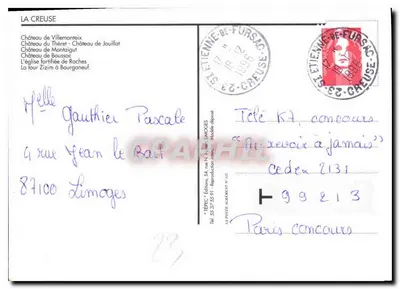 LA CREUSE
Château de Villemonteix
Château du Théret - Château de Jouillat
Château de Montaigut
Château de Boussac
L'église fortifiée de Roches
La tour Zizim à Bourganeuf.
ST ETIENNE-DE-FURSAC
23 - CREUSE
ST ETIENNE-DE-FURSAC
23 - CREUSE
Melle Gauthier Pascale
4 rue Jean le Bail
87100 Limoges
Télé K7, concours
"Au revoir à jamais"
cedex 2131
T 99213
Paris concours